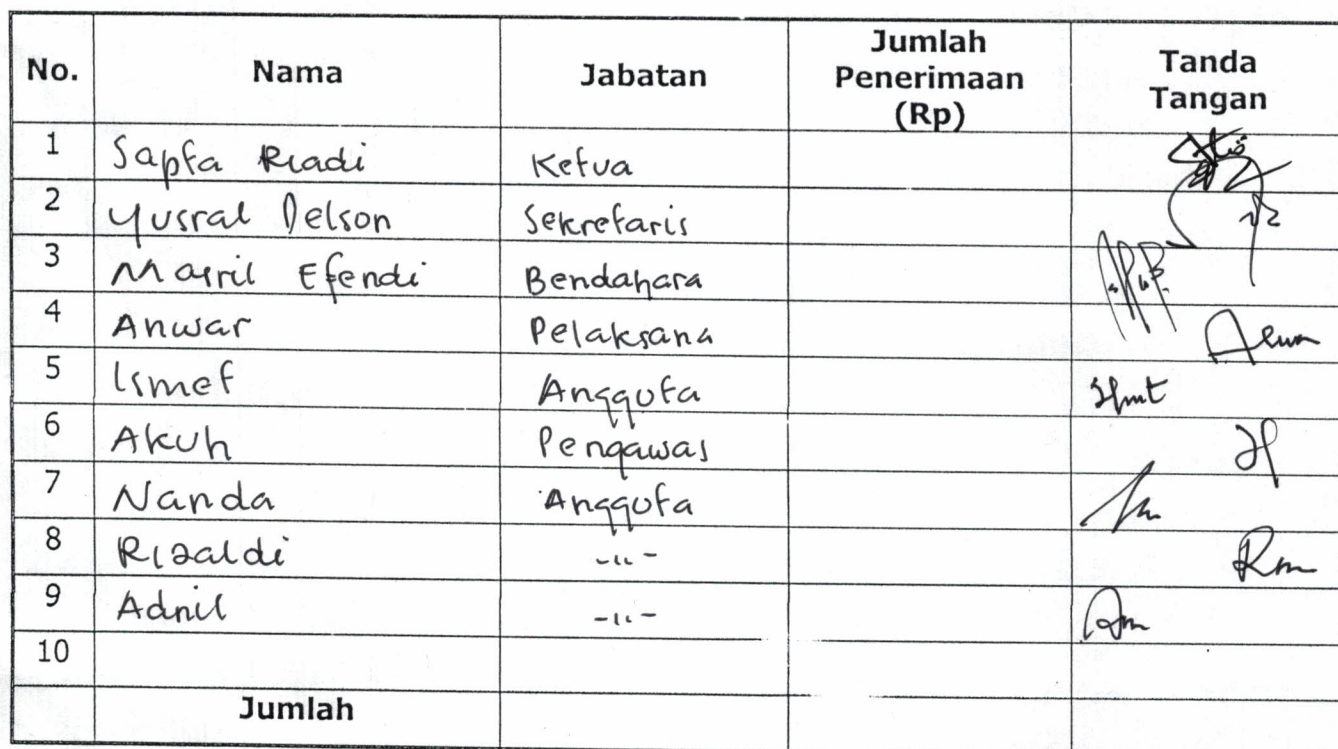 No. Nama Jabatan Jumlah Penerimaan (Rp) Tanda Tangan
1 Sapta Riadi Ketua
2 Yusral Delson Sekretaris
3 Masril Efendi Bendahara
4 Anwar Pelaksana
5 Ismet Anggota
6 Akuh Pengawas
7 Nanda Anggota
8 Rizaldi -"-
9 Adnil -"-
10
Jumlah